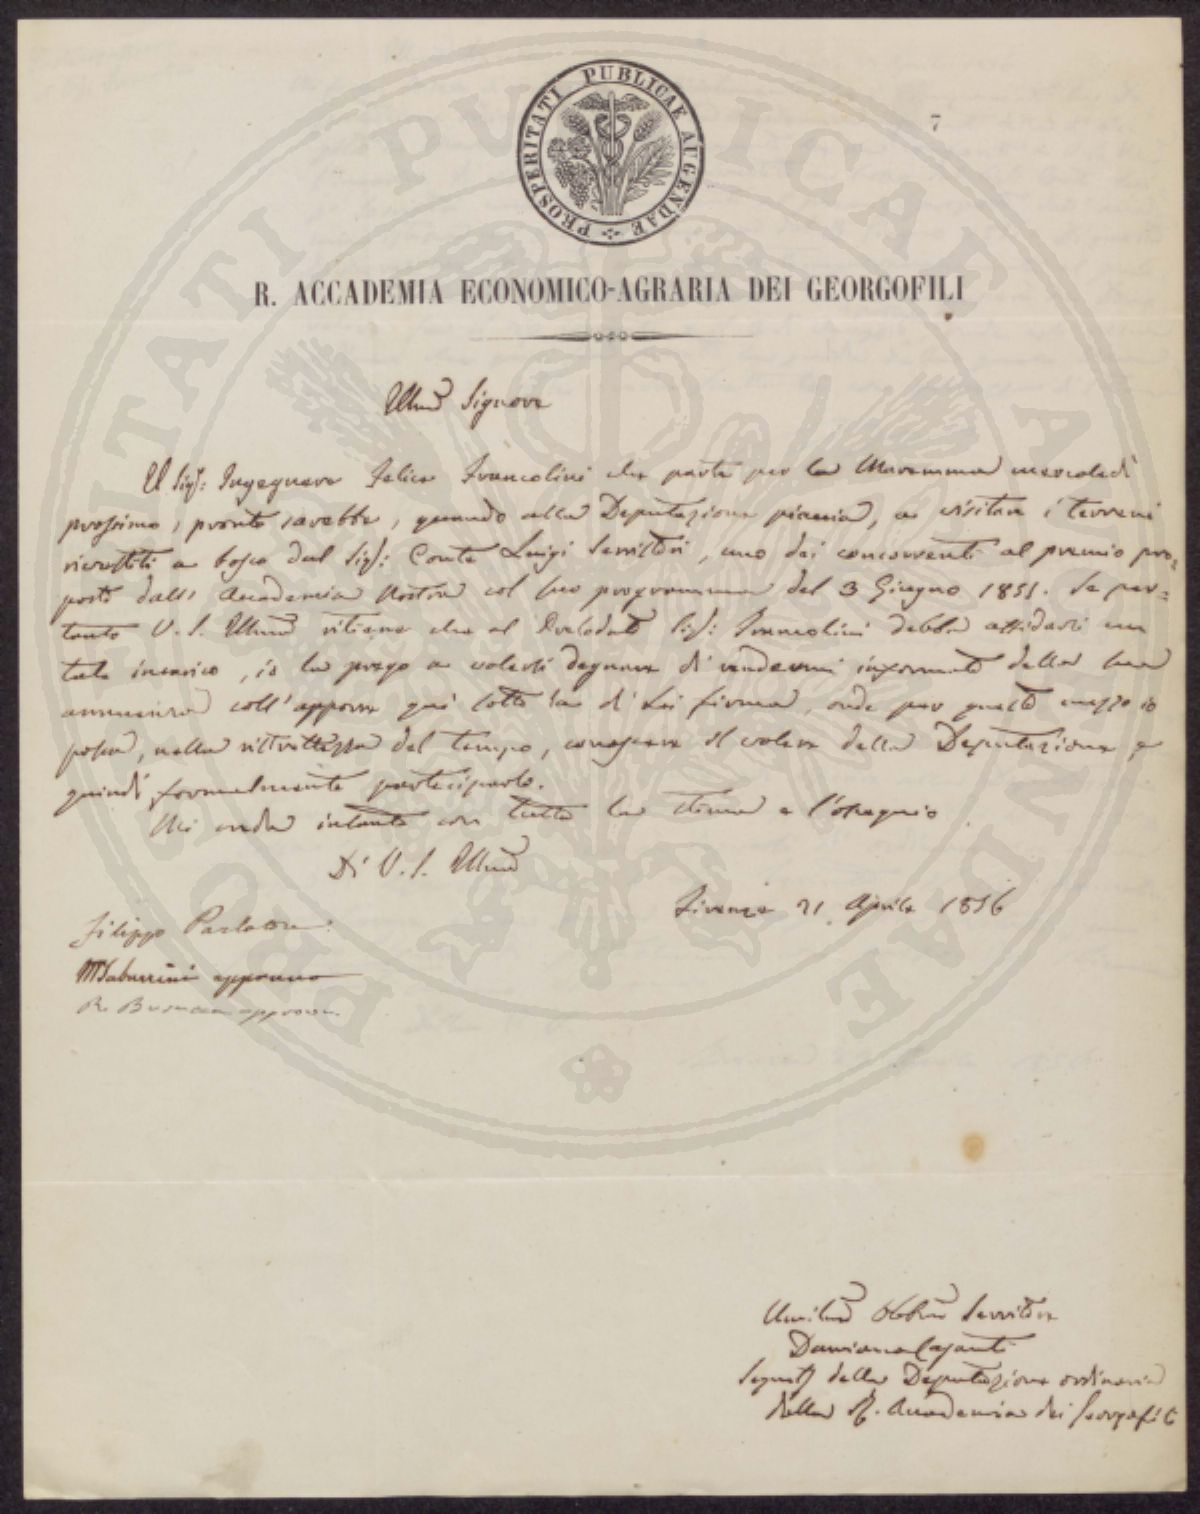 PROSPERITATI PUBLICAE AUGENDAE
7
R. ACCADEMIA ECONOMICO-AGRARIA DEI GEORGOFILI
Illmo Signore
Il Sigr: Ingegnere Felice Francolini che parte per la Maremma mercoledì
prossimo, pronto sarebbe, quando alla Deputazione piaccia, a visitare i terreni
rivestiti a bosco dal Sigr: Conte Luigi Serristori, uno dei concorrenti al premio pro=
posto dall' Accademia Nostra col suo programma del 3 Giugno 1851. Se per=
tanto V. S. Illma ritiene che al Prelodato Sigr: Francolini debba affidarsi un
tale incarico, io la prego a volersi degnare di rendermi informato della sua
annuenza coll' apporre quì sotto la di Lei firma, onde per questo mezzo io
possa, nella ristrettezza del tempo, conoscere il volere della Deputazione e
quindi formalmente parteciparlo.
Mi creda intanto con tutta la stima e l'ossequio
Di V. S. Illma
Firenze 21 Aprile 1856
Filippo Parlatore
MTabarrini approvo
R. Busacca approva
Umilmo Obbmo Servitore
Damiano Casanti
Segrio della Deputazione ordinaria
della R. Accademia dei Georgofili